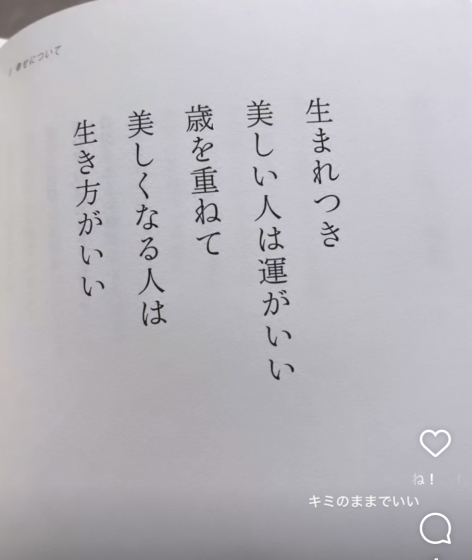 幸せについて
生まれつき
美しい人は運がいい
歳を重ねて
美しくなる人は
生き方がいい
ね！
キミのままでいい